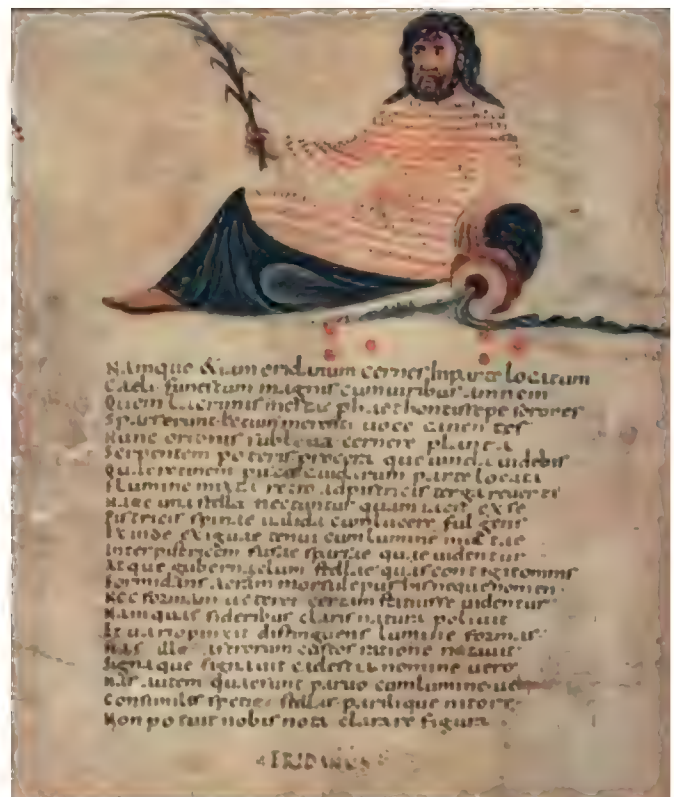 Namque &iam eridanum cernes Inparte locatam
Caeli funestum magnis cumuiribus amnem
Quem lacrimis mestae phaethontis sepe sorores
Sparserunt letum merenti uoce canentes
Hunc orionis sub leua cernere planta
Serpentem poteris procera que uincla uidebis
Quae retinent parte locata
Flumine mixta retro adpistricis terga reuerti
Haec una stella nectuntur quam iacit exse
Pistricis spinae ualida cumlucere fulgens
Exinde exiguae tenui cumlumine multae
Interpistricem fusae sparsae quae uidentur
Atque gubernaclum stellae quas contegitomnis
Formidans acrem morsulepus hisnequenomen
Nec formam ueteres certam statuisse uidentur
Namquas sideribus claris natura poliuit
Et uariopinxit distinguens lumine formas
Has ille astrorum custos ratione notauit
Signaque signauit caelestia nomine uero
Has autem quaesunt paruo cumlumine
Consimilis specie stellas parilique nitore
Non potuit nobis nota clarare figura
ERIDANUS